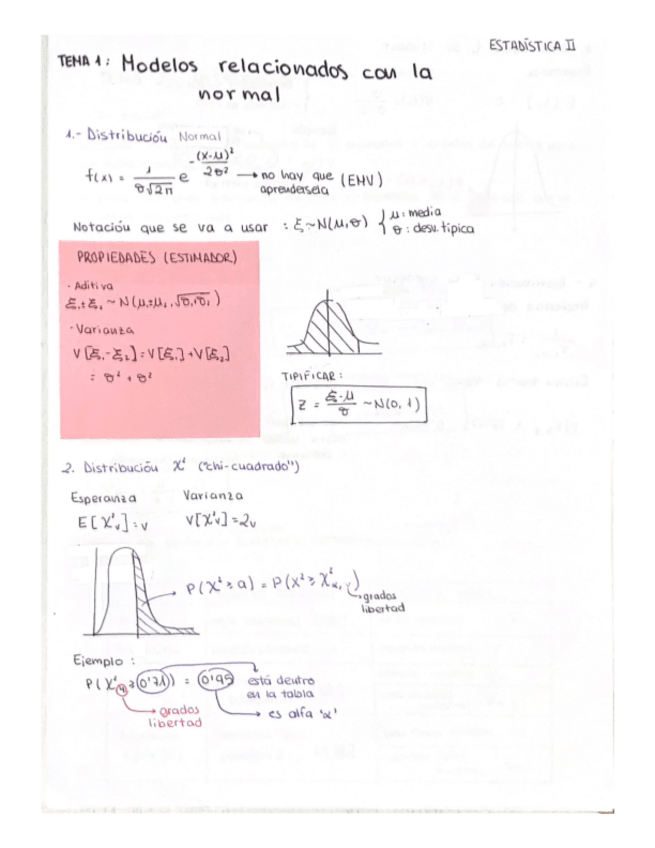 ESTADÍSTICA II
TEMA 1: Modelos relacionados con la
normal
1.- Distribución Normal
f(x) = 1/(σ√2π) e^(-(x-μ)²/2σ²) → no hay que (EMV)
aprendersela
Notación que se va a usar : ξ~N(μ,σ) { μ: media
σ: desv. típica
PROPIEDADES (ESTIMADOR)
· Aditiva
· Varianza
V[ξ₁-ξ₂] = V[ξ₁]+V[ξ₂]
= σ² + σ²
TIPIFICAR:
Z = (ξ-μ)/σ ~N(0,1)
2. Distribución χ² ("chi-cuadrado")
Esperanza Varianza
E[χ²ᵥ] = v V[χ²ᵥ] = 2v
P(χ² ≥ a) = P(χ² ≥ χ²α, v)
→ grados
libertad
Ejemplo :
P(χ²₄ ≥ 0'71) = 0'95 está dentro
en la tabla
→ grados
libertad
→ es alfa 'α'